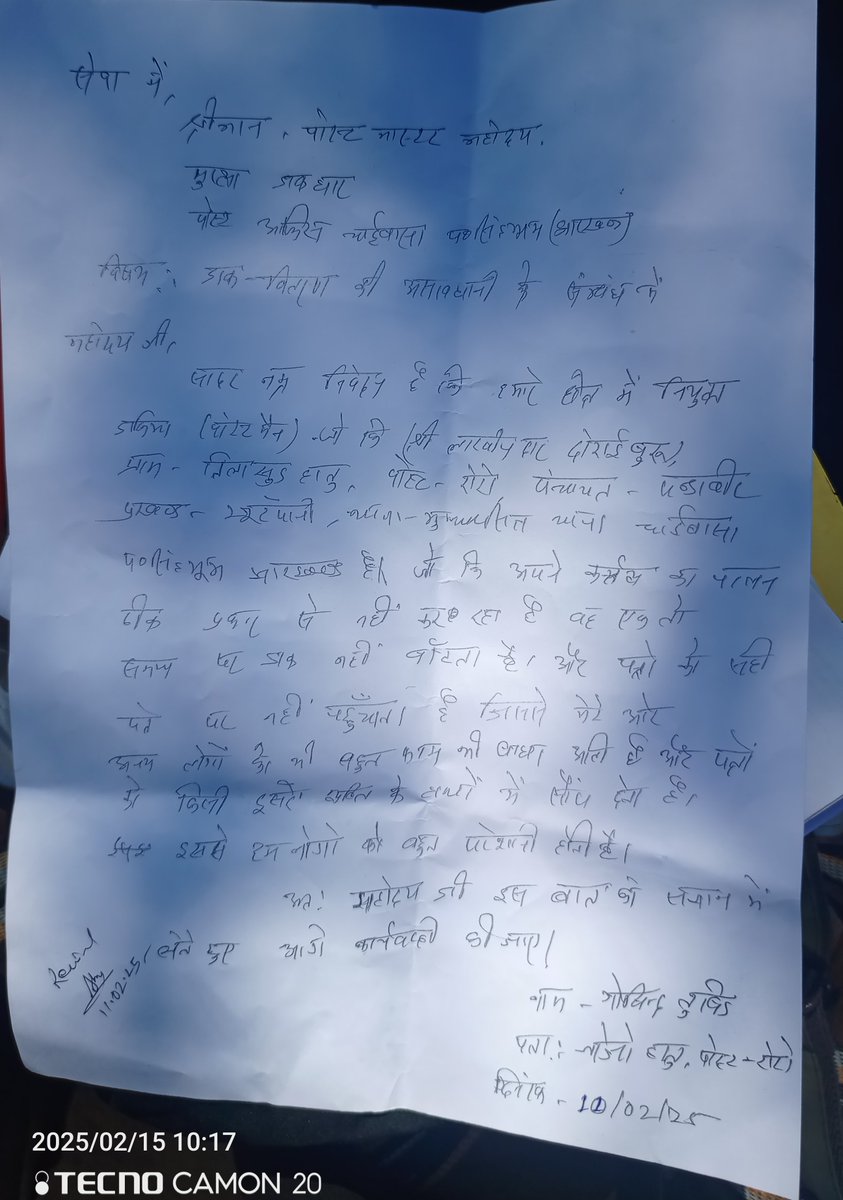 सेवा में,
श्रीमान, पोस्ट मास्टर महोदय.
मुख्य डाकघर
पोस्ट ऑफिस चाईबासा प०सिंहभूम (झारखण्ड)
विषय:: डाक-वितरण की असावधानी के संबंध में
महोदय जी,
सादर नम्र निवेदन है कि हमारे क्षेत्र में नियुक्त
डाकिया (पोस्ट मैन) जो कि (श्री दोराईबुरू,
ग्राम- हातु, पोस्ट- रोरो, पंचायत-
प्रखण्ड- खूंटपानी, थाना- मुफ्फसिल थाना चाईबासा
प०सिंहभूम झारखण्ड है। जो कि अपने कर्त्तव्य का पालन
ठीक प्रकार से नहीं कर रहा है वह एक तो
समय पर डाक नहीं बाँटता है। और पत्रों को सही
पते पर नहीं पहुँचाता है जिससे मेरे और
अन्य लोगों के भी बहुत काम की बाधा आती है और पत्रों
को किसी दूसरे व्यक्ति के हाथों में सौंप देता है।
इससे हम लोगो को बहुत परेशानी होती है।
अतः महोदय जी इस बात को संज्ञान में
लेते हुए आगे कार्यवाही की जाए।
11.02.25
नाम - गोविन्द
पता:- हातु, पोस्ट-रोरो
दिनांक - 10/02/25
2025/02/15 10:17
TECNO CAMON 20